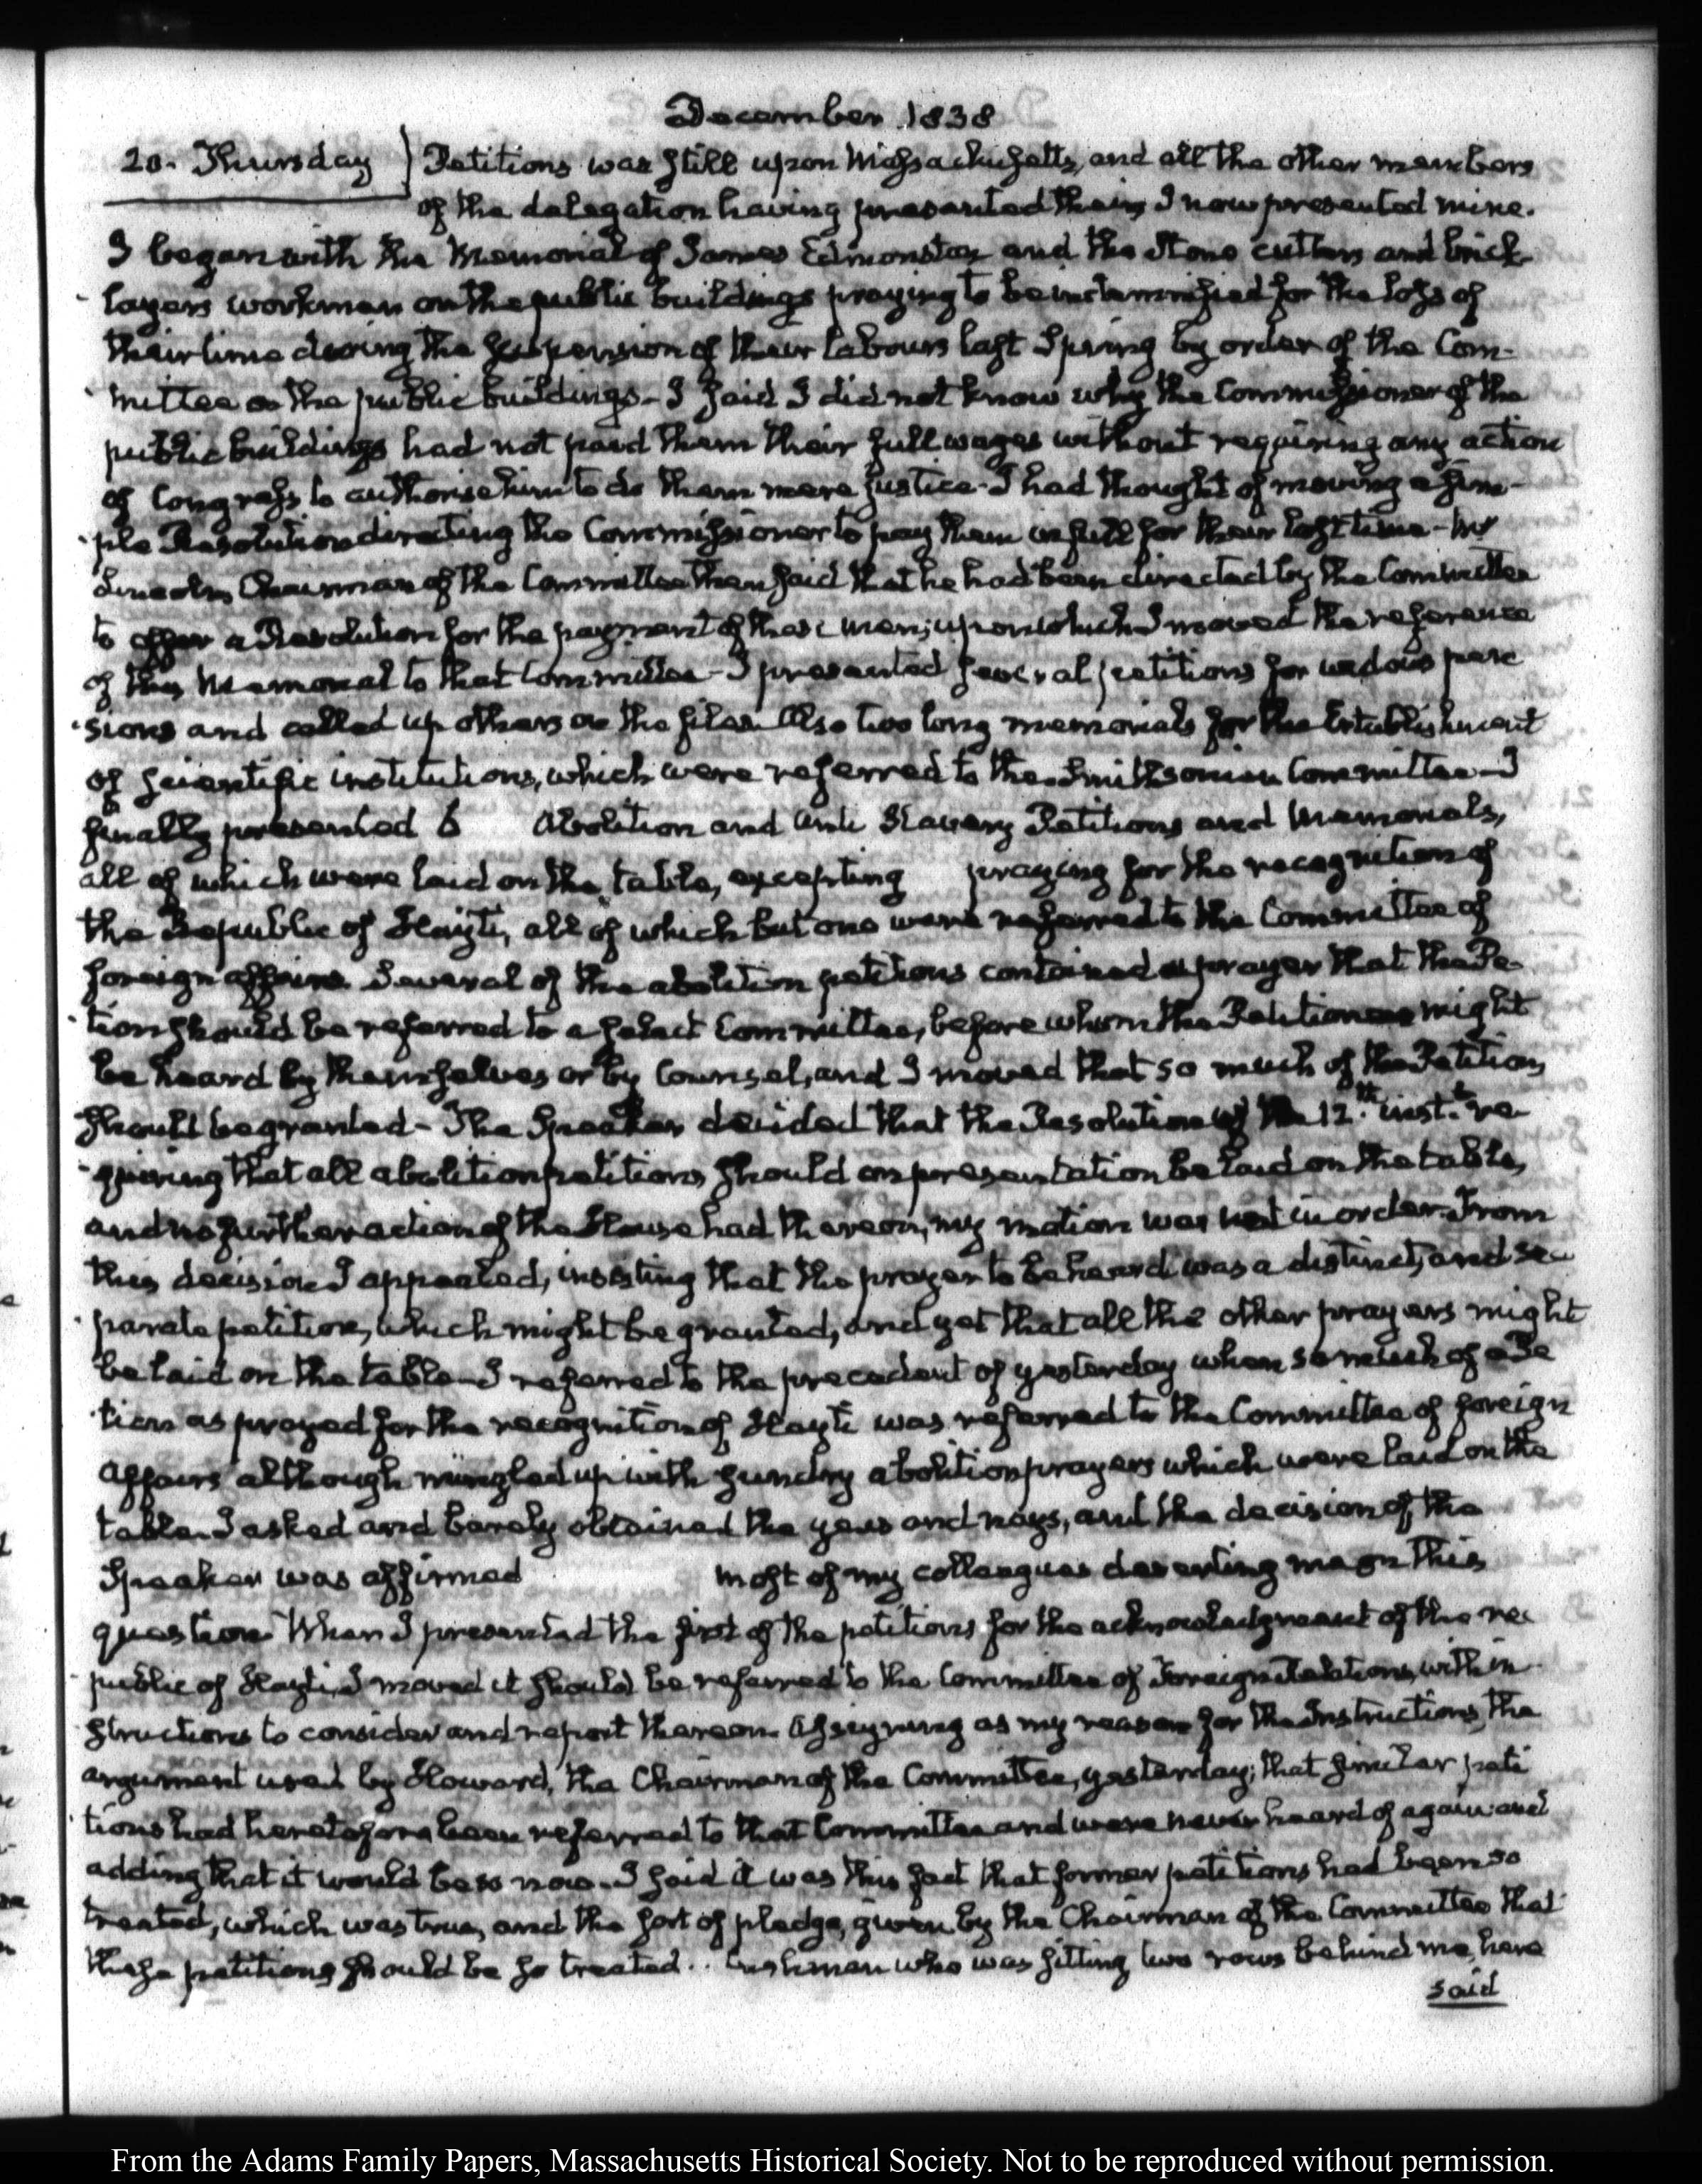 December 1838
20. Thursday Petitions was still upon Massachusetts, and all the other members
of the delegation having presented theirs I now presented mine.
I began with the Memorial of James Edmonston and the Stone cutters and brick
layers workmen on the public buildings praying to be indemnified for the loss of
their time during the suspension of their labours last Spring by order of the Com-
mittee on the public buildings. I said I did not know why the Commissioner of the
public buildings had not paid them their full wages without requiring any action
of Congress to authorise him to do them mere justice. I had thought of moving a sim-
ple Resolution directing the Commissioner to pay them in full for their lost time – Mr
Lincoln, Chairman of the Committee then said that he had been directed by the Committee
to offer a Resolution for the payment of these men; upon which I moved the reference
of this Memorial to that Committee – I presented several petitions for widows pen
sions and called up others on the files. Also two long memorials for the Establishment
of scientific institutions, which were referred to the Smithsonian Committee – I
finally presented 6 Abolition and Anti Slavery Petitions and Memorials,
all of which were laid on the table, excepting praying for the recognition of
the Republic of Hayti, all of which but one were referred to the Committee of
foreign affairs. Several of the abolition petitions contained a prayer that the Pe-
tion should be referred to a select Committee, before whom the Petitioners might
be heard by themselves or by Counsel, and I moved that so much of the Petition
should be granted – The Speaker decided that the Resolution of the 12.th inst.t re-
quiring that all abolition petitions should on presentation be laid on the table,
and no further action of the House had thereon, my motion was not in order. From
this decision I appealed, insisting that the prayer to be heard was a distinct, and se-
parate petition, which might be granted, and yet that all the other prayers might
be laid on the table. I referred to the precedent of yesterday when so much of a Pe
tion as prayed for the recognition of Hayti was referred to the Committee of foreign
Affairs although mingled up with sundry abolition prayers which were laid on the
table. I asked and barely obtained the yeas and nays, and the decision of the
Speaker was affirmed most of my colleagues deserting me on this
question. When I presented the first of the petitions for the acknowledgment of the re-
public of Hayti, I moved it should be referred to the Committee of Foreign Relations, with in-
structions to consider and report thereon. Assigning as my reason for the Instructions, the
argument used by Howard, the Chairman of the Committee, yesterday; that similar peti
tions had heretofore been referred to that Committee and were never heard of again and
adding that it would be so now. I said it was this fact that former petitions had been so
treated, which was true, and the sort of pledge, given by the Chairman of the Committee that
these petitions should be so treated.. Cushman who was sitting two rows behind me, here
said
From the Adams Family Papers, Massachusetts Historical Society. Not to be reproduced without permission.